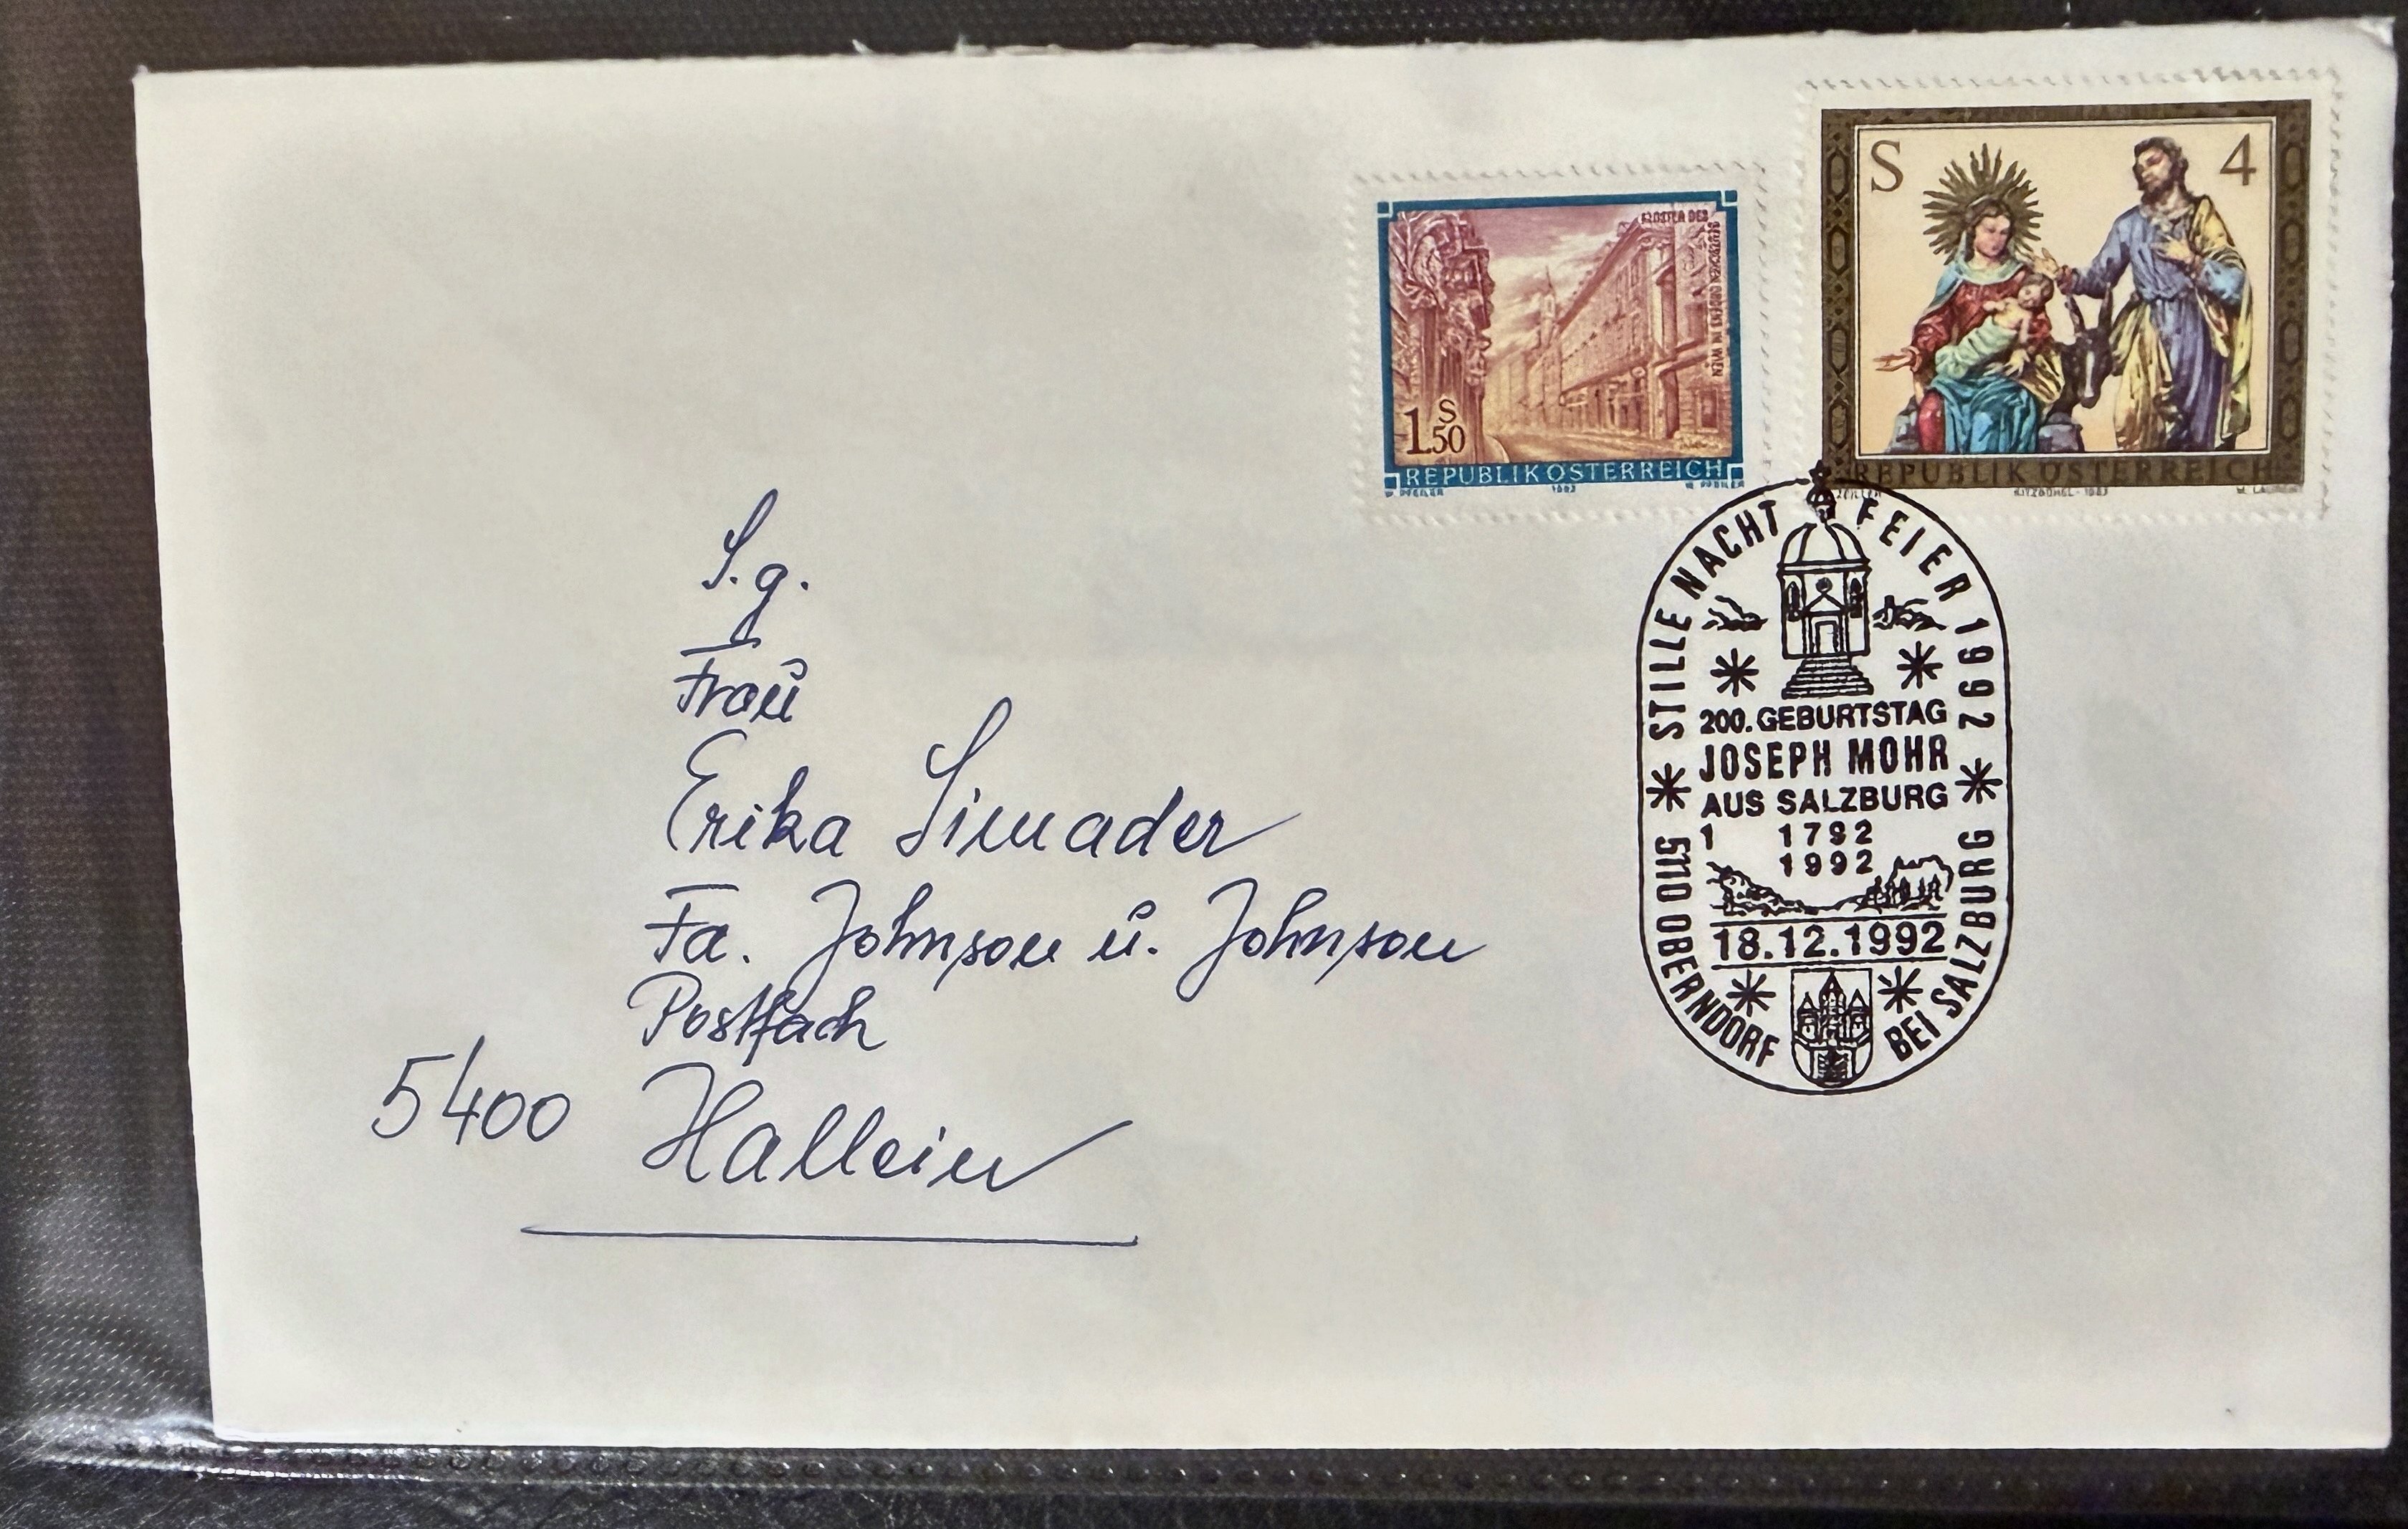 S 4
REPUBLIK ÖSTERREICH
KITZBÜHEL-1983
KLOSTER DES
DEUTSCHEN ORDENS IN WIEN
1 S 50
REPUBLIK ÖSTERREICH
W. PFEILER 1992 W. PFEILER
S.g.
Frau
Erika Simader
Fa. Johnson u. Johnson
Postfach
5400 Hallein
STILLE NACHT FEIER 1992
200. GEBURTSTAG
JOSEPH MOHR
AUS SALZBURG
1 1792
1992
18.12.1992
5110 OBERNDORF BEI SALZBURG